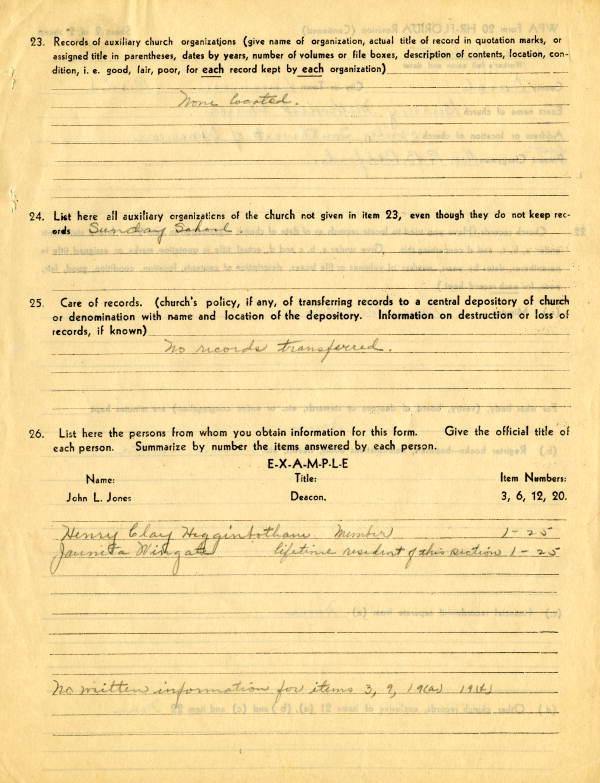 23. Records of auxiliary church organizations (give name of organization, actual title of record in quotation marks, or
assigned title in parentheses, dates by years, number of volumes or file boxes, description of contents, location, con-
dition, i. e. good, fair, poor, for each record kept by each organization)
None located.
24. List here all auxiliary organizations of the church not given in item 23, even though they do not keep rec-
ords Sunday School.
25. Care of records. (church's policy, if any, of transferring records to a central depository of church
or denomination with name and location of the depository. Information on destruction or loss of
records, if known)
No records transferred.
26. List here the persons from whom you obtain information for this form. Give the official title of
each person. Summarize by number the items answered by each person.
E-X-A-M-P-L-E
Name: Title: Item Numbers:
John L. Jones Deacon. 3, 6, 12, 20.
Henry Clay Higginbotham Member 1-25
Juanita Wingate lifetime resident of this section 1-25
No written information for items 3, 9, 19(a) 19(b)